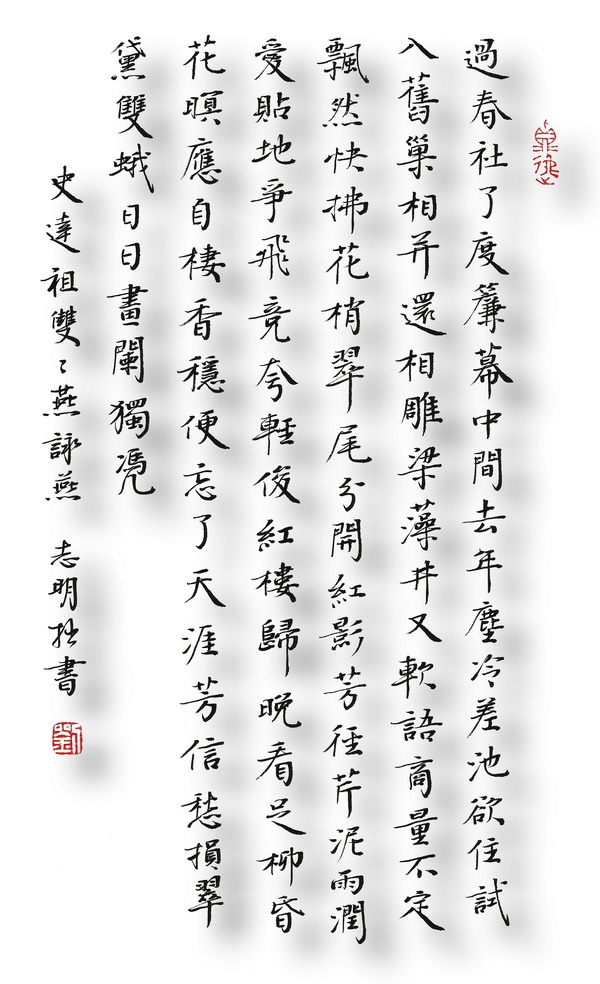 過春社了度簾幕中間去年塵冷差池欲住試
入舊巢相并還相雕梁藻井又軟語商量不定
飄然快拂花梢翠尾分開紅影芳徑芹泥雨潤
愛貼地爭飛竞夸輕俊紅樓歸晚看足柳昏
花暝應自棲香穩便忘了天涯芳信愁損翠
黛雙蛾日日畫闌獨凴
史達祖雙〻燕詠燕 志明拙書
劉